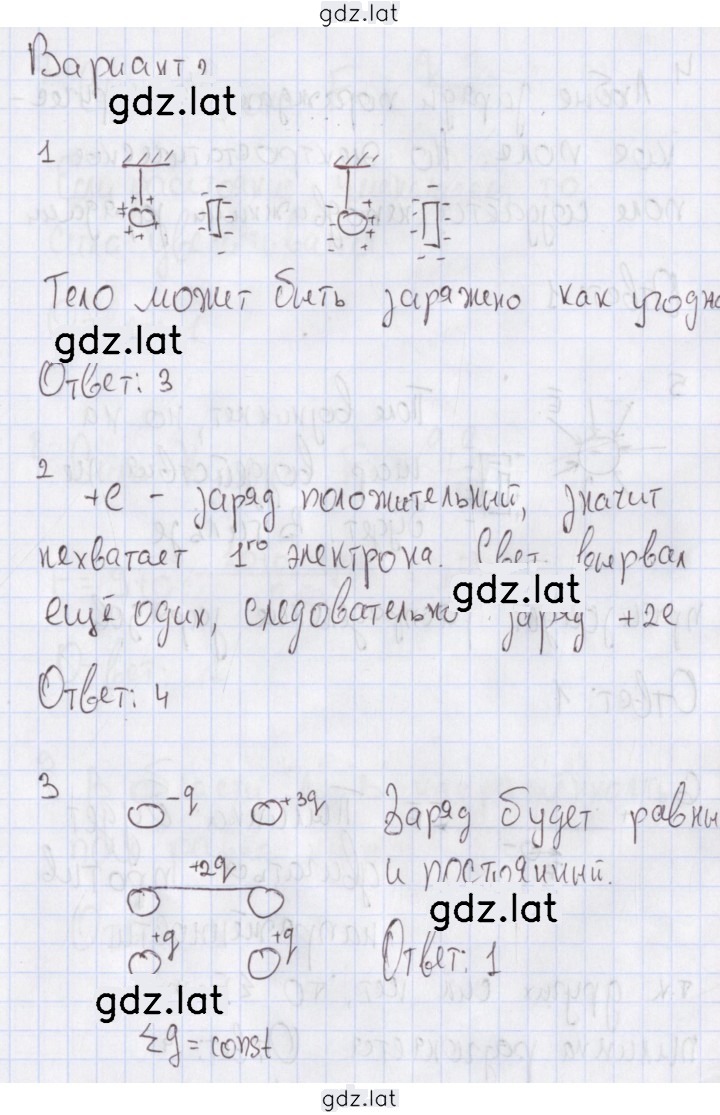 gdz.lat
Вариант 2
gdz.lat
1
Тело может быть заряжено как угодно
gdz.lat
Ответ: 3
2
+e - заряд положительный, значит
нехватает 1го электрона. Свет вырвал
gdz.lat
ещё один, следовательно заряд +2e
Ответ: 4
3
-q +3q Заряд будет равны
+2q и постоянный.
gdz.lat
+q +q Ответ: 1
gdz.lat
Σq = const
gdz.lat